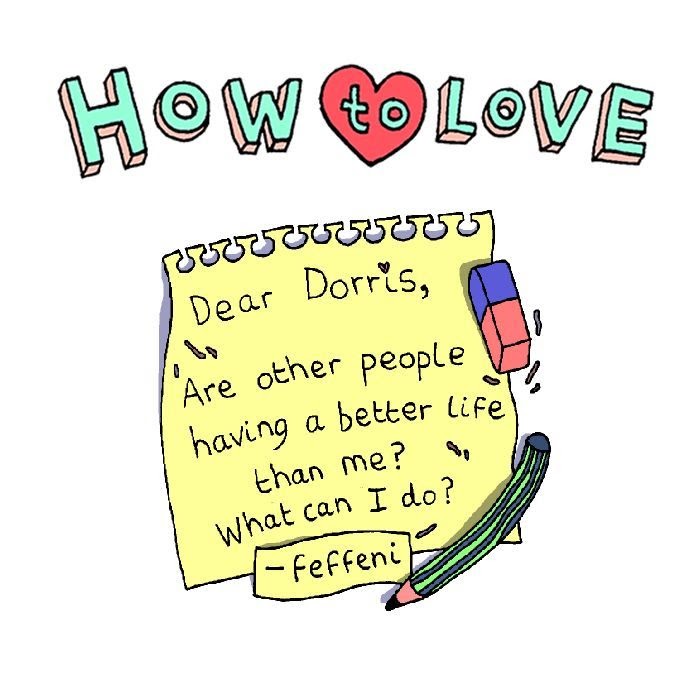 How to LOVE
Dear Dorris,
Are other people
having a better life
than me?
What can I do?
-feffeni